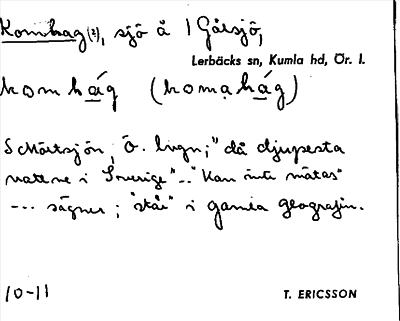 Komhag(?), sjö å 1 Gålsjö,
Lerbäcks sn, Kumla hd, Ör. l.
komhág (komahág)
Svartsjön, Ö. lign; "då djupesta
vattne i Sverige" -.. "kan inte mätas"
--- sägner; "står" i gamla geografin.
10-11
T. ERICSSON